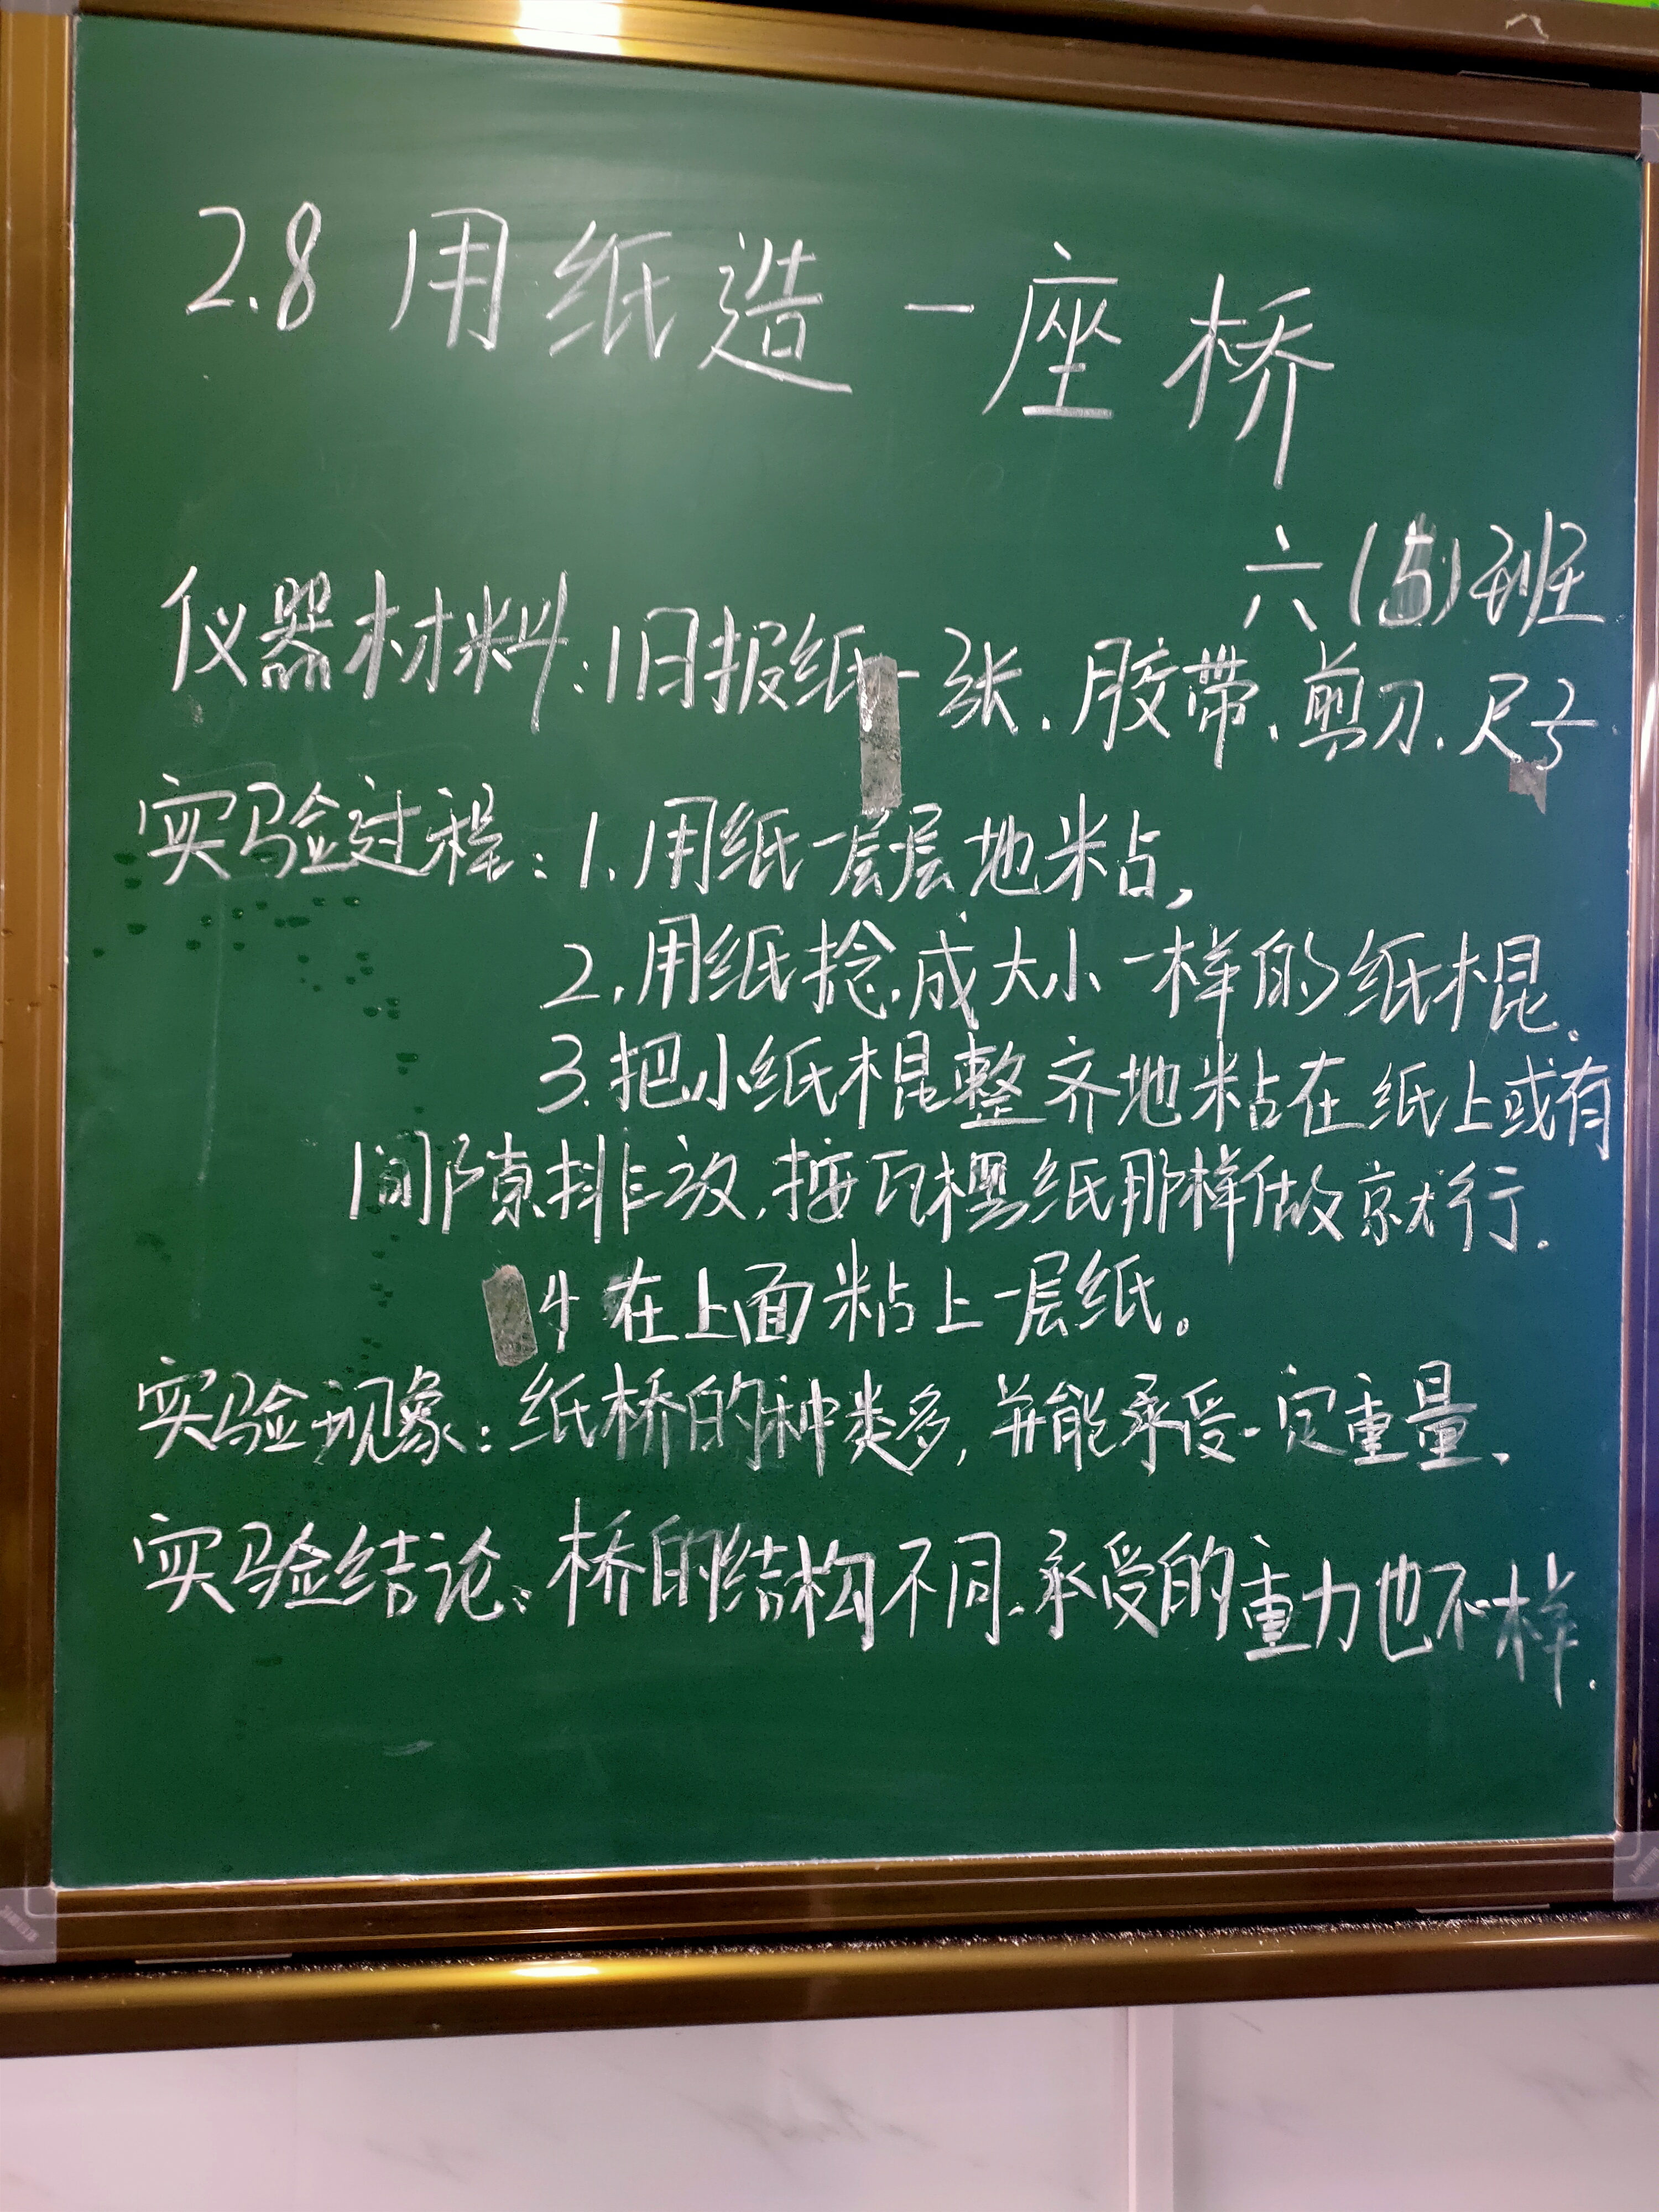 2.8 用纸造一座桥
六(5)班
仪器材料:旧报纸一张、胶带、剪刀、尺子
实验过程:1.用纸一层层地粘,
2.用纸捻成大小一样的纸棍。
3.把小纸棍整齐地粘在纸上或有
间隙排放,按瓦楞纸那样做就行.
4 在上面粘上一层纸。
实验现象:纸桥的种类多,并能承受一定重量、
实验结论:桥的结构不同、承受的重力也不一样.